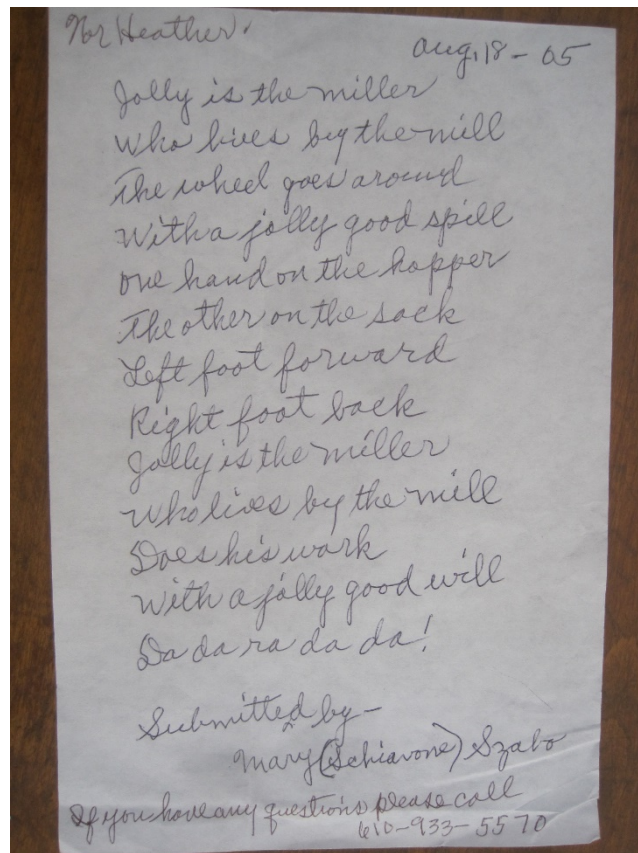 For Heather.
Aug, 18 - 05
Jolly is the miller
Who lives by the mill
The wheel goes around
With a jolly good spill
One hand on the hopper
The other on the sack
Left foot forward
Right foot back
Jolly is the miller
Who lives by the mill
Does his work
With a jolly good will
Da da ra da da!
Submitted by -
Mary (Schiavone) Szabo
If you have any questions please call
610-933-5570